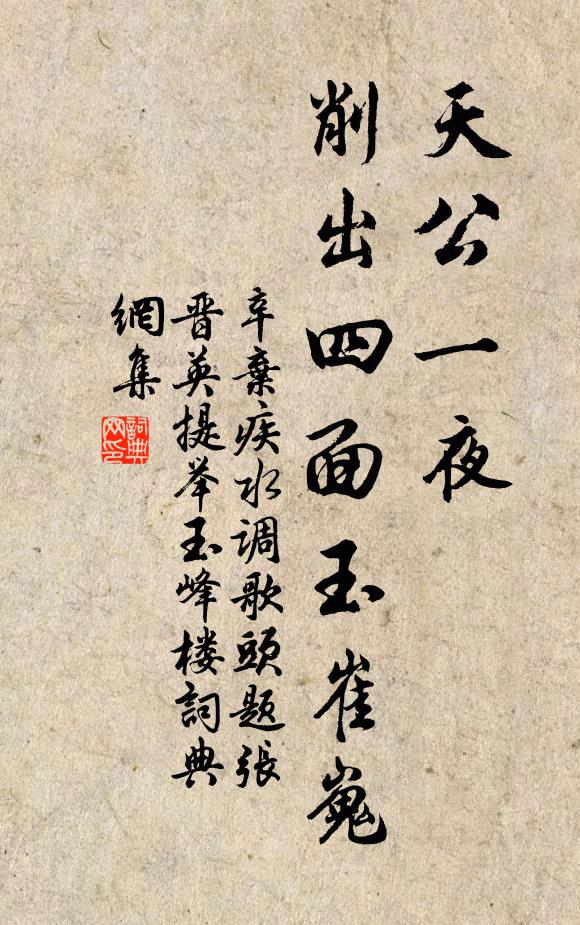 天公一夜
削出四面玉崔嵬
辛棄疾水调歌頭题張
晋英提举玉峰楼詞典
網集
詞典
网印